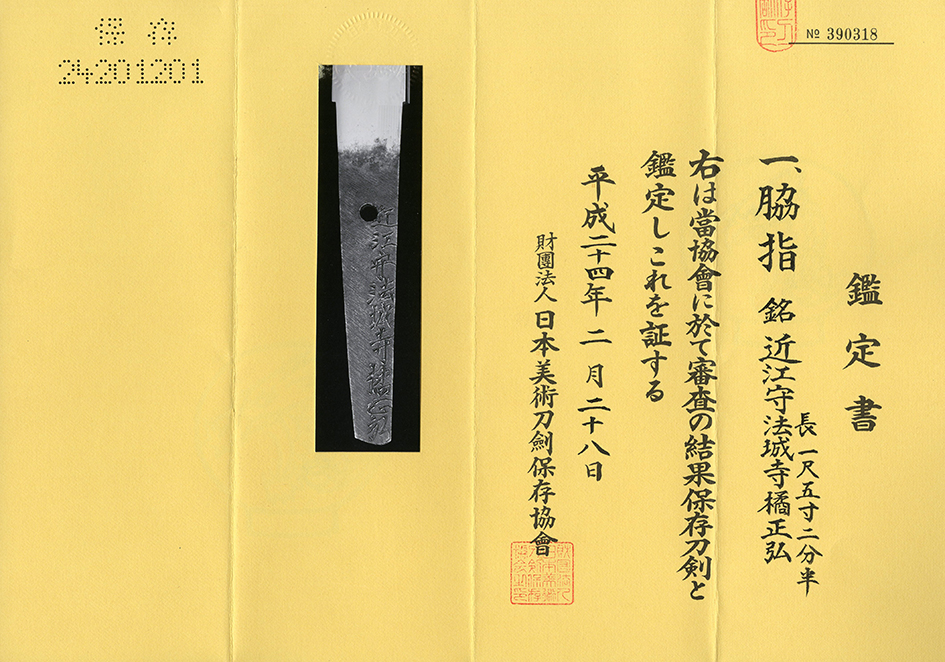 № 390318
鑑定書
一、脇指 銘 近江守法珹寺橘正弘
長一尺五寸二分半
右は當協會に於て審査の結果保存刀剣と
鑑定しこれを証する
平成二十四年二月二十八日
財團法人日本美術刀劍保存協會
近江守法珹寺橘正弘
保存
24201201